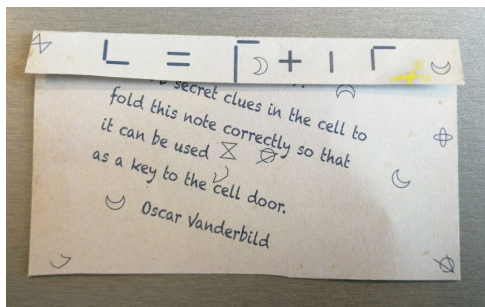 secret clues in the cell to
fold this note correctly so that
it can be used
as a key to the cell door.
Oscar Vanderbild